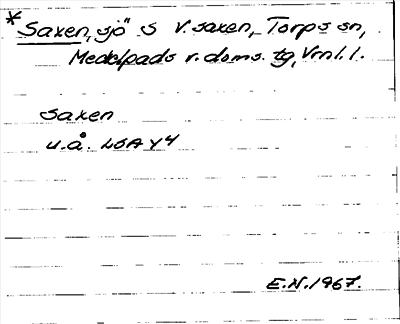 * Saxen, sjö" S V. saxen, Torps sn,
Medelpads v. doms. tg, Vrnl. l.
saxen
u.å. LSA Y4
E.N. 1967.